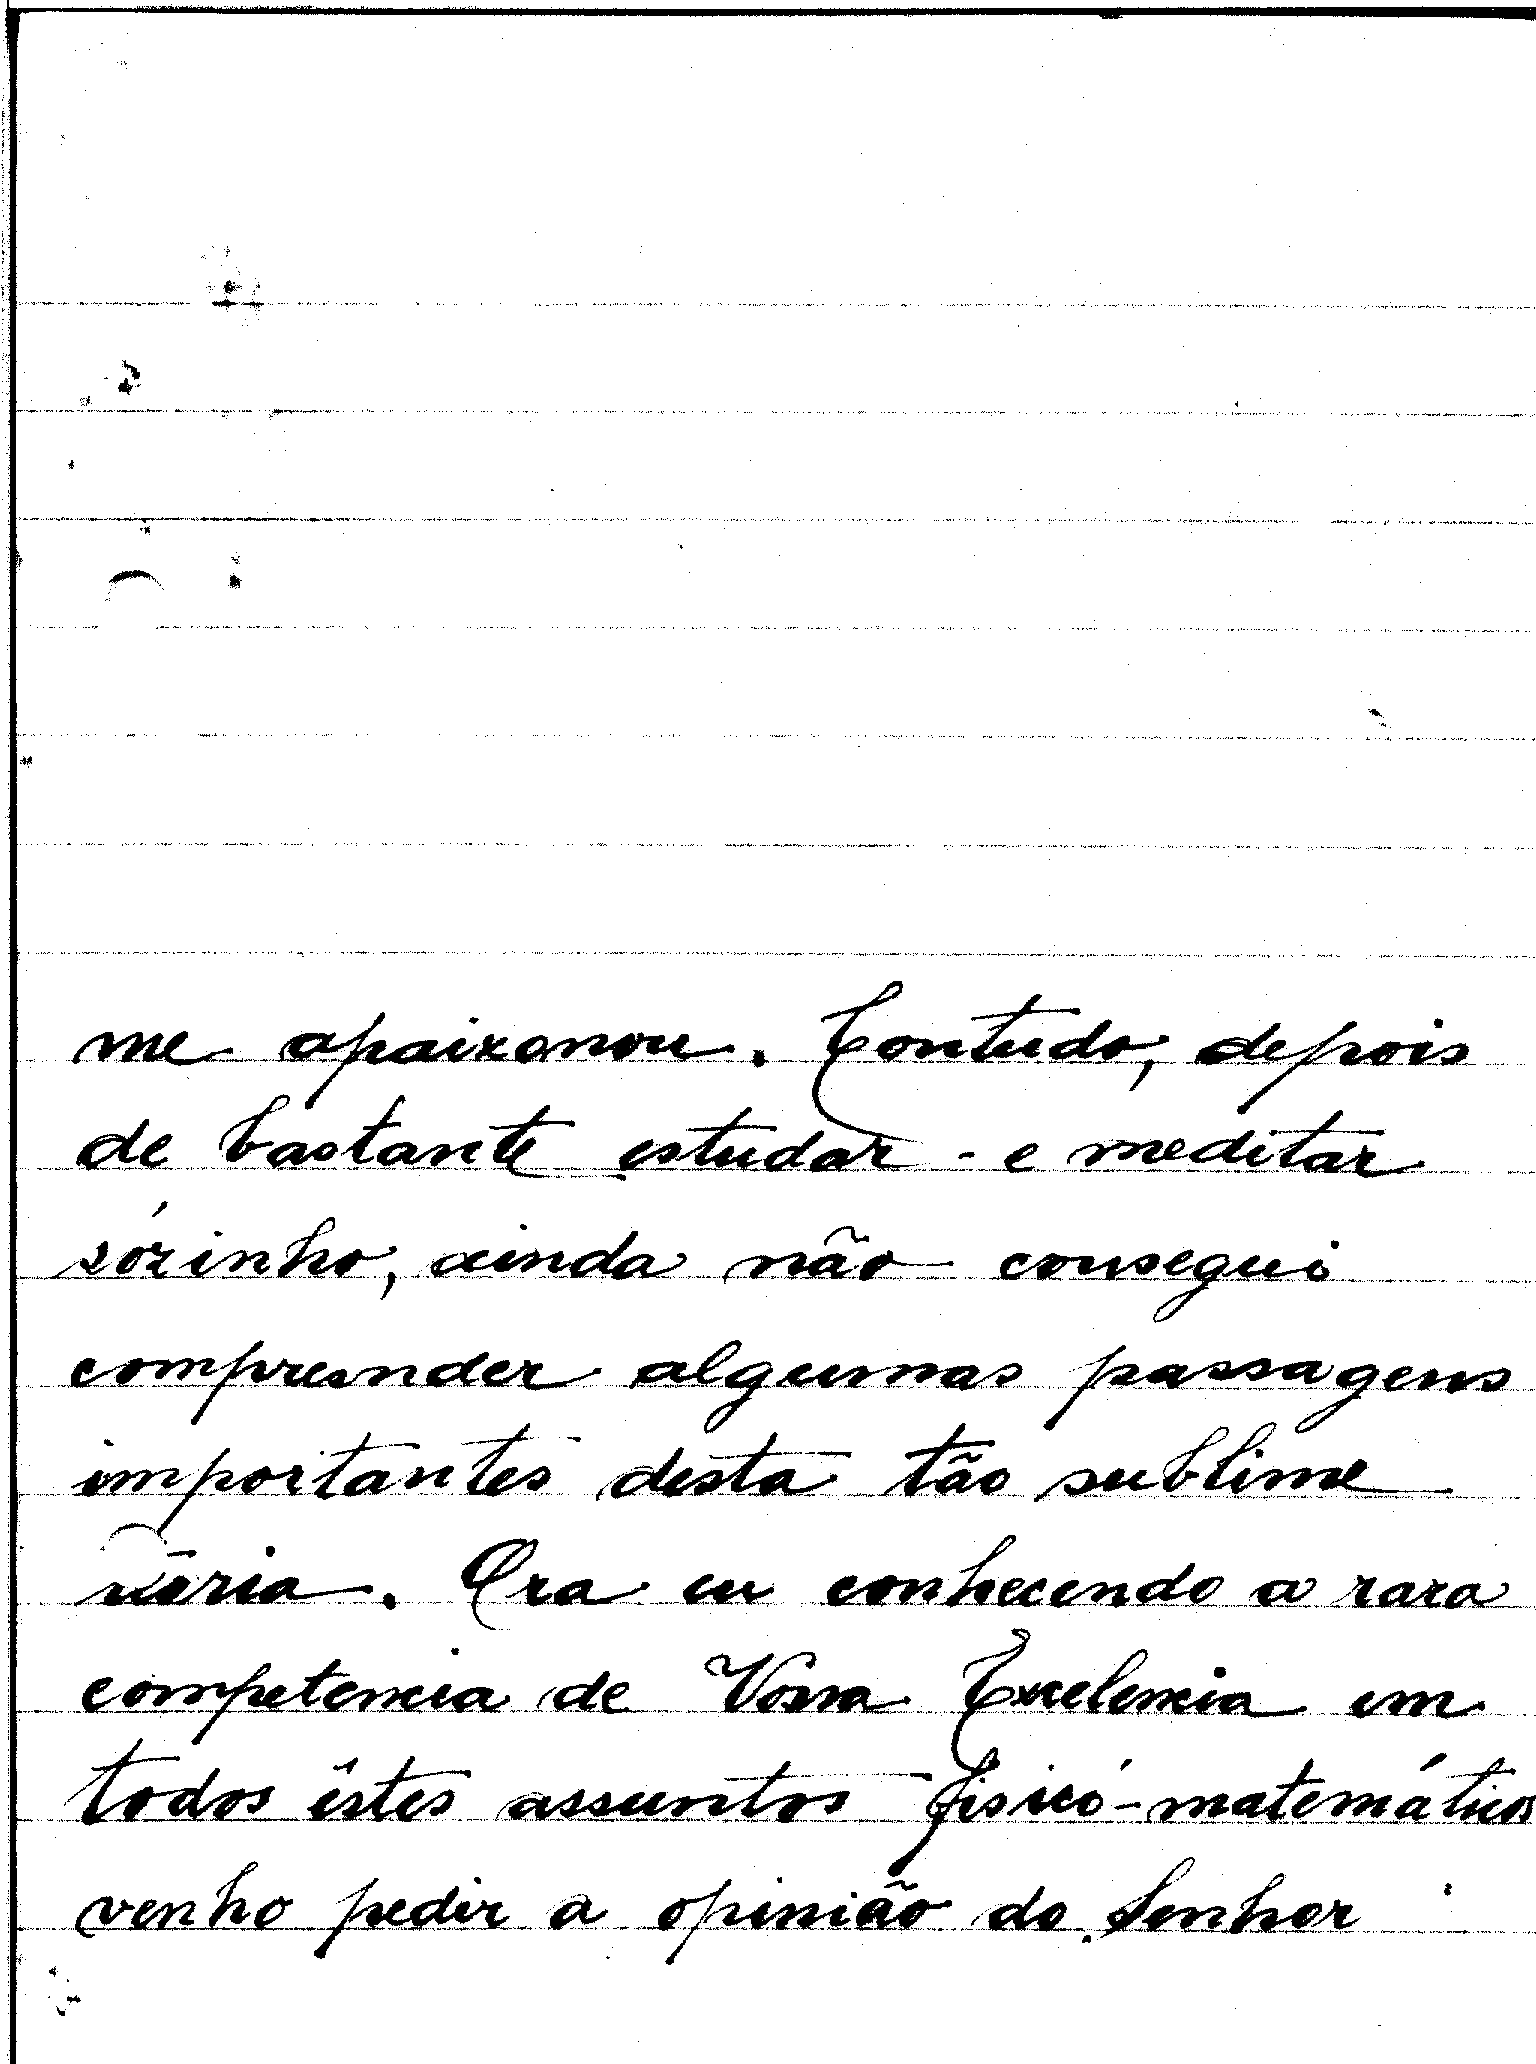 me apaixonou. Contudo, depois
de bastante estudar - e meditar
sózinho, ainda não consegui
compreender algumas passagens
importantes desta tão sublime
Ora eu conhecendo a rara
competencia de Vossa Excelencia em
todos êstes assuntos fisicó-matemáticos
venho pedir a opinião do Senhor